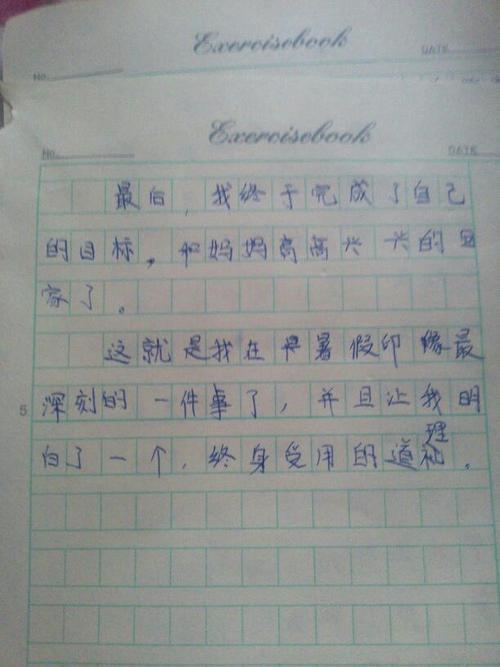 Exercisebook
DATE
No.
Exercisebook
No.
DATE
最后,我终于完成了自己
的目标。和妈妈高高兴兴的回
家了。
这就是我在暑假印缘最
深刻的一件事了,并且让我明
理
白了一个,终身受用的道。
5